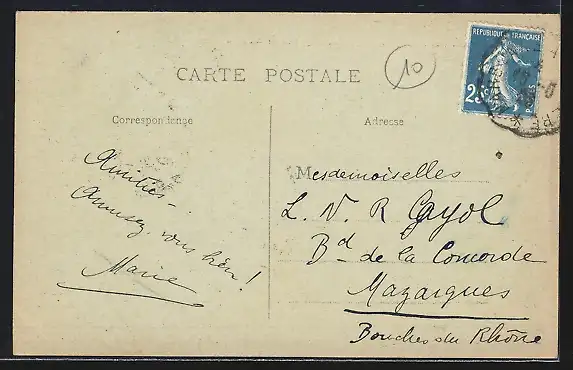 REPUBLIQUE FRANÇAISE
CARTE POSTALE
10
Correspondance
Adresse
Amitiés -
Amusez vous bien !
Marie
Mesdemoiselles
L. V. R Gayol
Bd de la Concorde
Mazargues
Bouches du Rhône